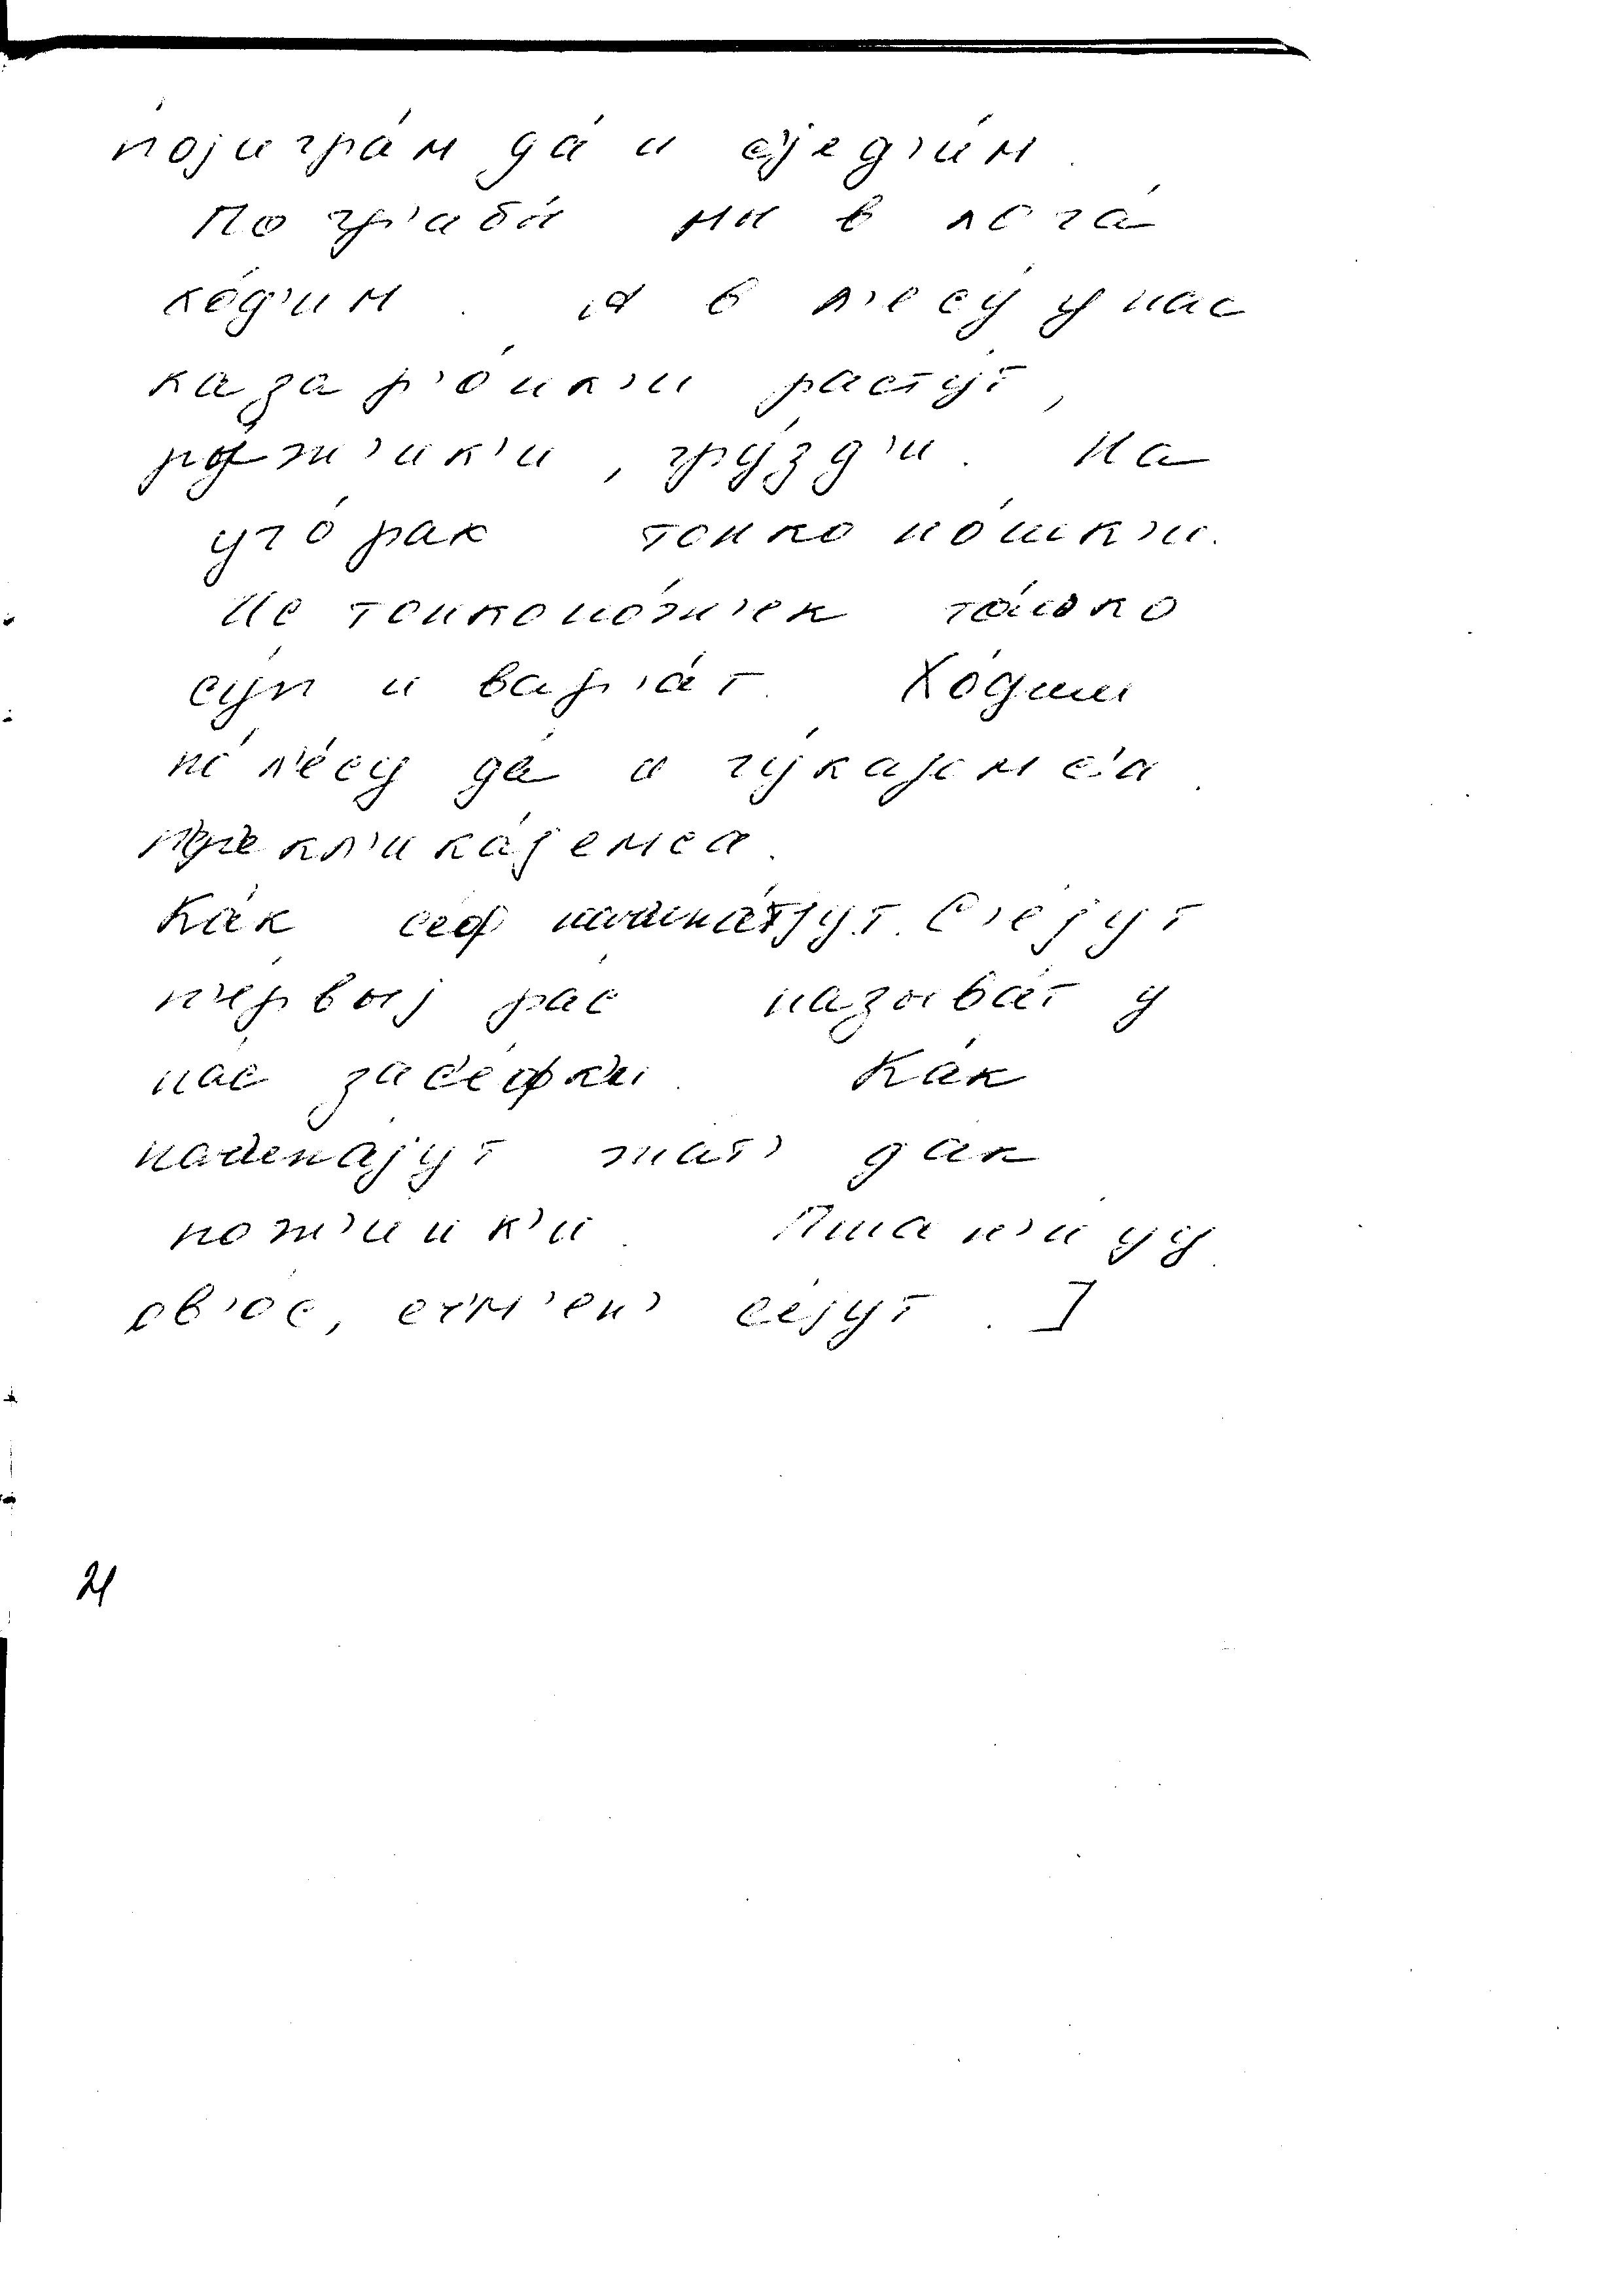 појигра́м да́ и сjед'и́м.
По гр'абы́ мы в лога́
хо́д'им. А в л'есу́ у нас
каза р'о́нк'и расту́т,
ры́ж'ик'и, гру́зд'и. На
уго́рах тонконо́шк'и.
Ис тонконо́ж'ек то́л'ко
су́п и вар'а́т. Хо́дим
по́ л'есу да́ и гу́кајемс'а.
Пер'екл'ика́јемса.
Ка́к се́ф начина́јут. С'е́јут
п'е́рвој рас называ́т у
нас зас'е́фк'и. Ка́к
начина́јут жат' дак
пож'и́нк'и. Пшан'и́цу,
ов'о́с, ечм'е́н' се́јут. ]
21